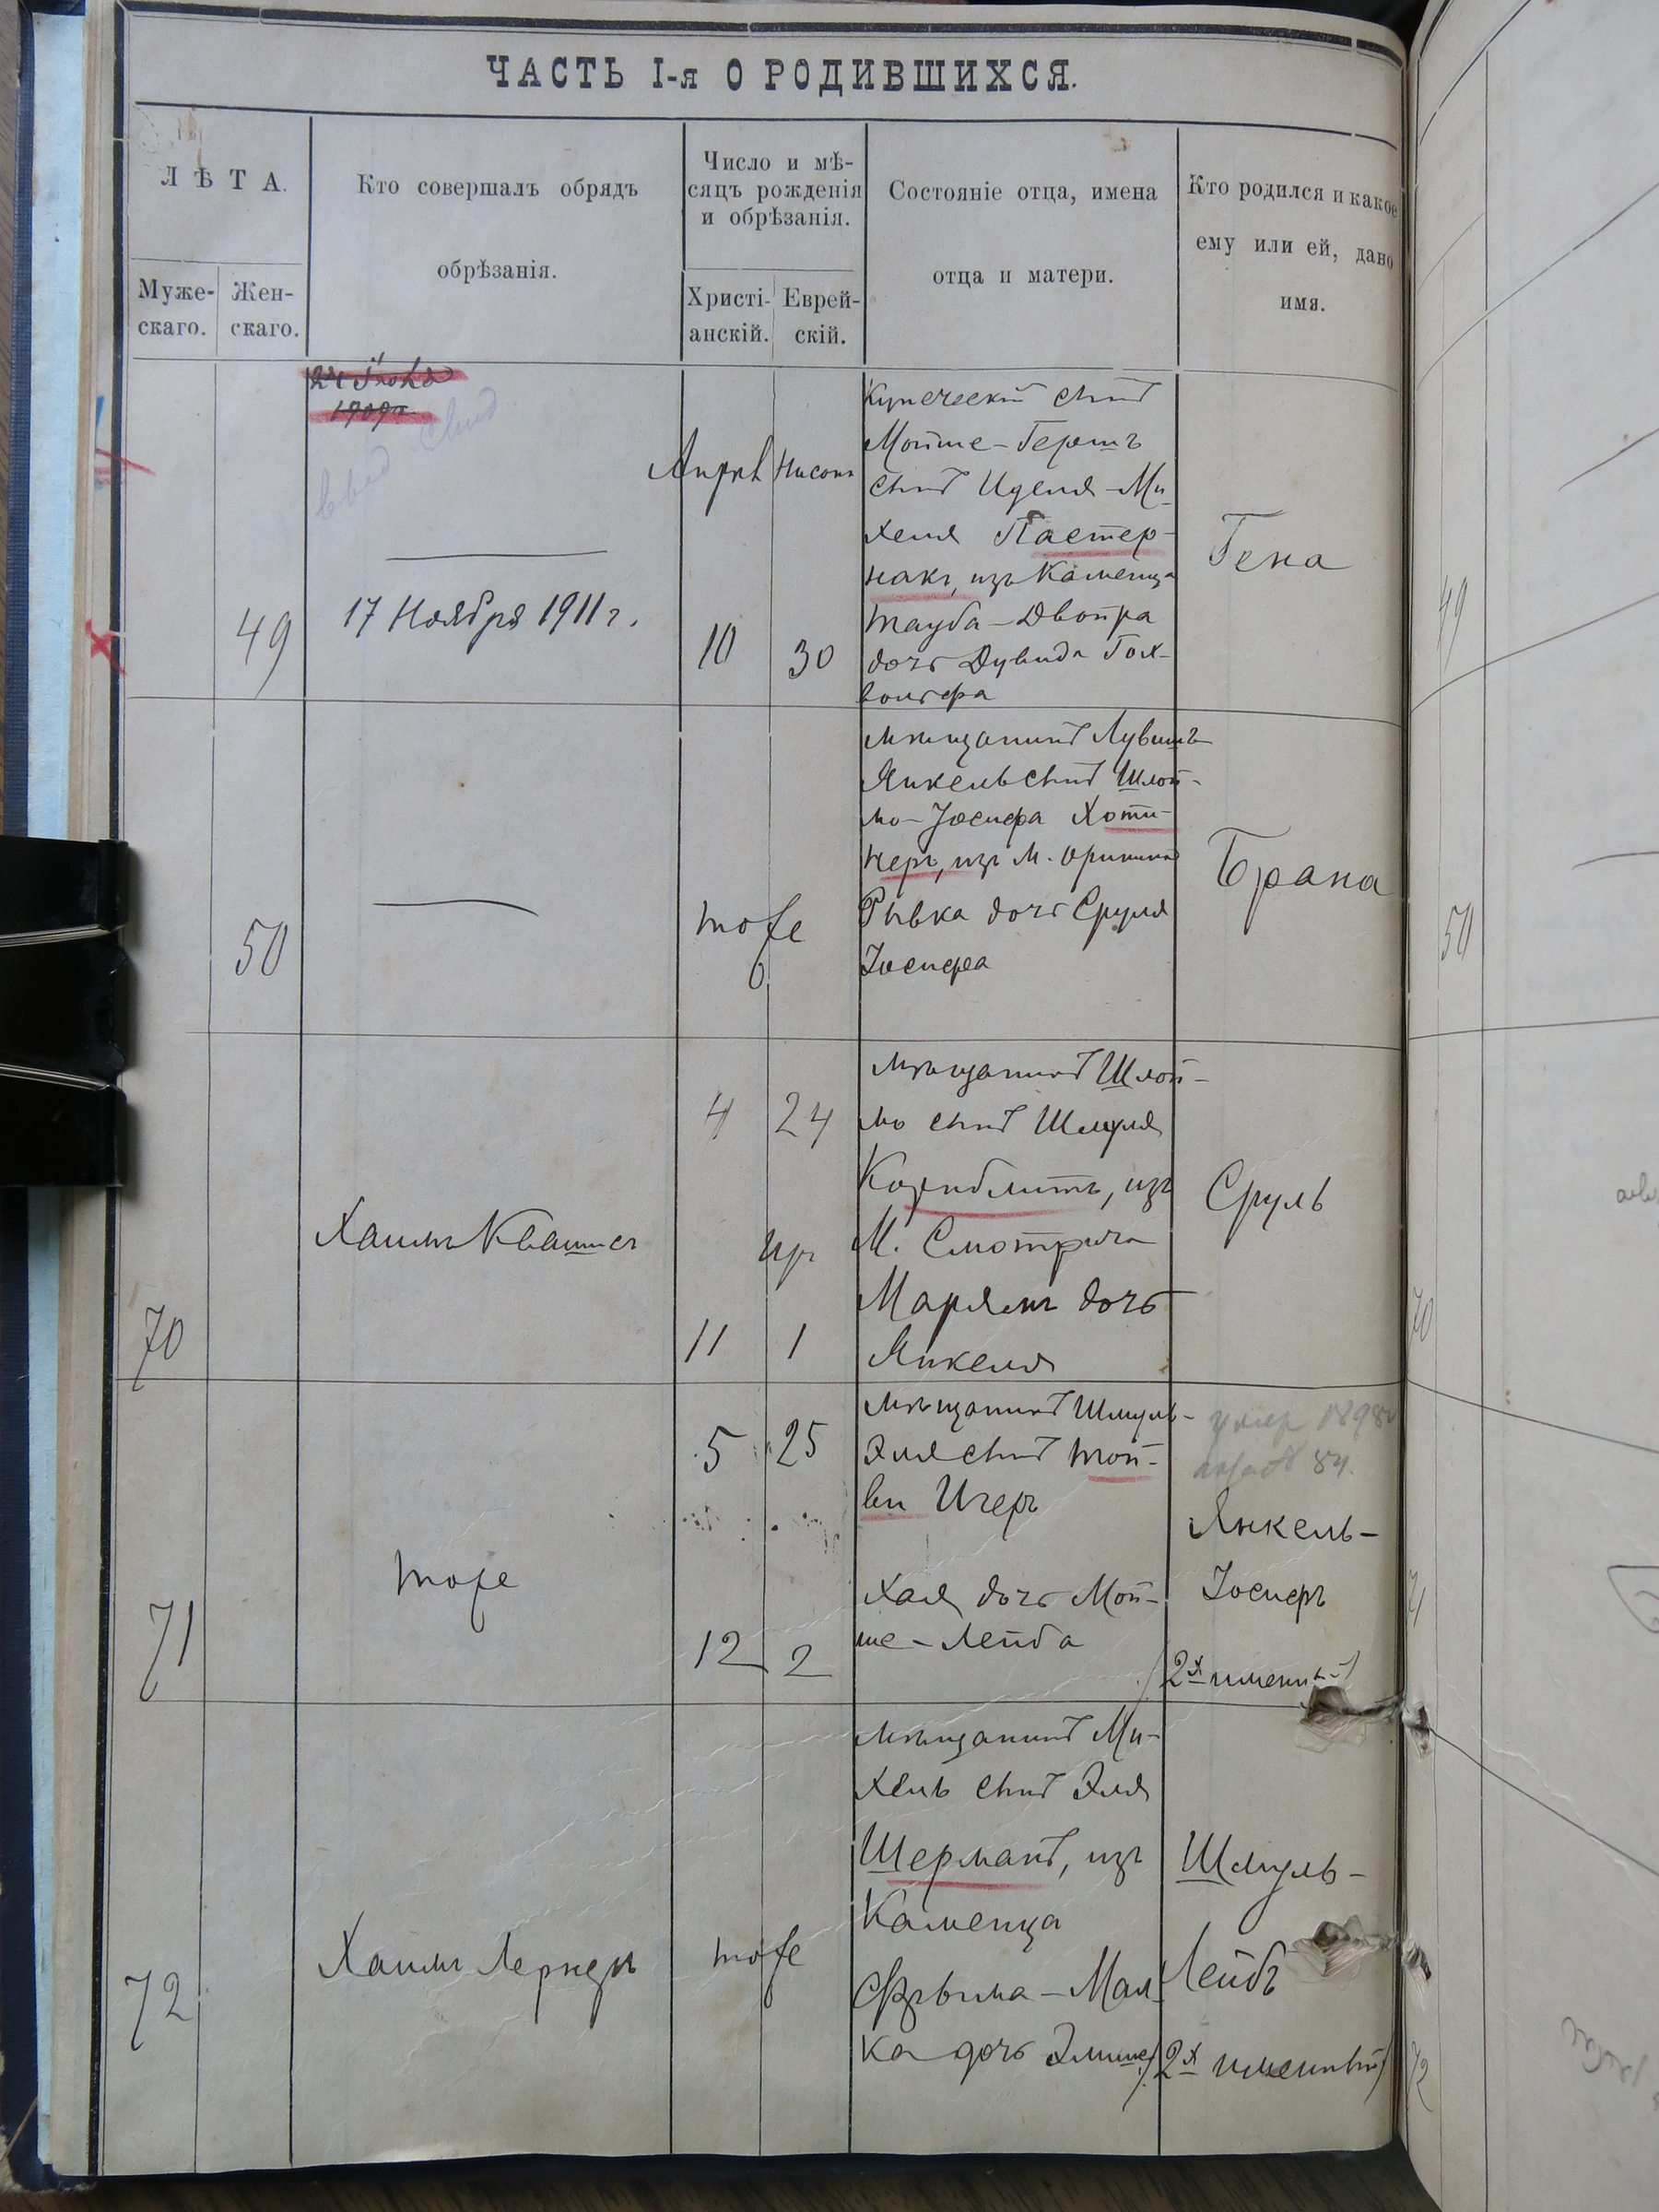 ЧАСТЬ I-я О РОДИВШИХСЯ.
ЛѢТА.
Муже-
скаго.
Жен-
скаго.
Кто совершалъ обрядъ
обрѣзанія.
Число и мѣ-
сяцъ рожденія
и обрѣзанія.
Христі-
анскій.
Еврей-
скій.
Состояніе отца, имена
отца и матери.
Кто родился и какое
ему или ей, дано
имя.
49
17 Ноября 1911 г.
Апрѣл
Нисонъ
10
30
Купеческій сынъ
Мойше-Гершъ
сынъ Иделя-Ми-
хеля Пастер-
накъ, изъ Каменца
Тауба-Двойра
дочь Дувида Гох-
Гена
49
50
тоже
мѣщанинъ
Янкель сынъ Шлой-
мо-Іосифа Хоти-
неръ, изъ м. Оринина
Рывка дочь Сруля
Іосифа
Брана
50
70
Хаимъ
4
24
Ир
11
1
мѣщанинъ Шлой-
мо сынъ Шмуля
изъ
М. Смотрича
Марямъ дочь
Янкеля
Сруль
70
71
тоже
5
25
12
2
мѣщанинъ Шмуль-
Эля сынъ Той-
ви
Хая дочь Мой-
ше-Лейба
умер 1898
84.
Янкель-
Іосифъ
(2х именный)
71
72
Хаимъ Лернеръ
тоже
мѣщанинъ Ми-
хель сынъ Эля
Шерманъ, изъ
Каменца
Фрыма-Мал-
ка дочь
Шмуль-
Лейбъ
(2х именный)
72